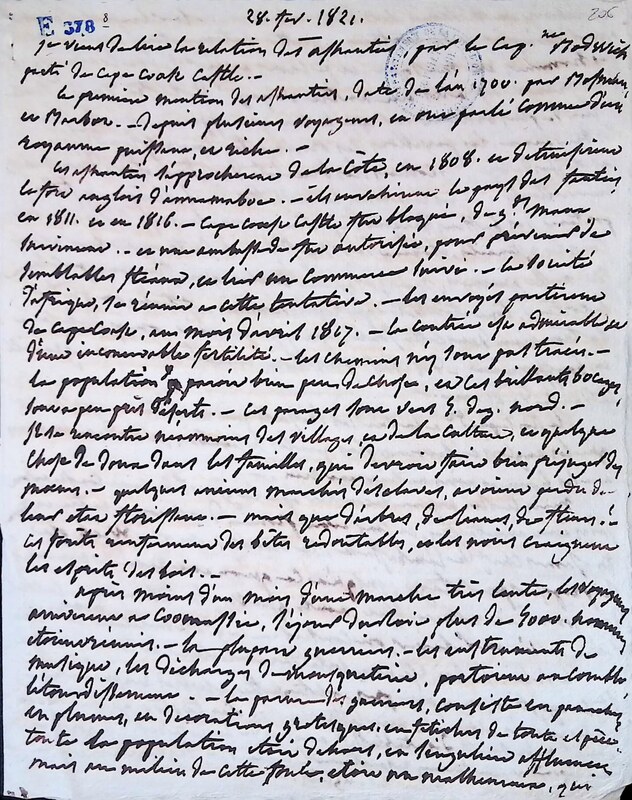 28. fev. 1821.
E 378 8
306
je viens de lire la relation des ashantées, par le Cap.ne
parti de Cape Coast Castle. -
la premiere mention des ashantées, date de l'an 1700. par
et Marbot. - depuis plusieurs voyageurs, en ont parlé comme d'un
royaume puissant, et riche. -
les ashantées s'approcherent de la Côte, en 1808. et detruisirent
le fort anglois d'annamaboe. - ils envahirent le pays des fantées
en 1811. et en 1816. - Cape Coast Castle fut bloqué, de g.ds maux
survinrent. - et une ambassade fut autorisée, pour prévenir de
semblables fléaux, et lier un commerce suivi. - la société
d'afrique, se réunit à cette tentative. - les envoyés partirent
de Cape Coast, au mois d'avril 1817. - la contrée est admirable et
d'une inconcevable fertilité. - les chemins n'y sont pas tracés. -
la population y paroit bien peu de chose, et ces brillants bocages
sont à peu près déserts. - ces parages sont vers 5. deg. nord. -
il se rencontre néanmoins des villages, et de la culture, et quelque
chose de doux dans les familles, qui devroit faire bien préjuger des
moeurs. - quelques anciens marchés d'esclaves, avoient perdu de
leur état florissant. - mais que d'arbres, de lianes, de fleurs! -
ces forêts renferment des bêtes redoutables, et les noirs craignent
les esprits des bois. -
après moins d'un mois d'une marche très lente, les voyageurs
arriverent à Coomassie, séjour du Roi plus de 5000. hommes
etoient réunis. - la plupart guerriers. - les instruments de
musique, les décharges de mousqueterie, portoient au comble
l'étourdissement. - la parure des guerriers, consiste en panaches
en plumes, en décorations grotesques. en fetiches de toute espèce
toute la population etoit dehors, en singuliere affluence
mais au milieu de cette foule, etoit un malheureux, qui